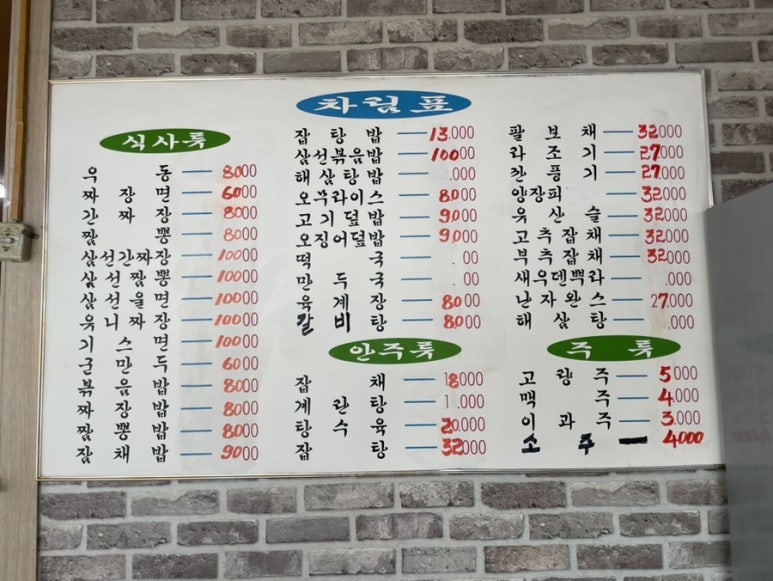 차림표
식사류
우동 8000
짜장면 6000
간짜장 8000
짬뽕 8000
삼선간짜장 10000
삼선짬뽕 10000
삼선울면 10000
유니짜장 10000
기스면 10000
군만두 6000
볶음밥 8000
짜장밥 8000
짬뽕밥 8000
잡채밥 9000
잡탕밥 13.000
삼선볶음밥 10000
해삼탕밥 .000
오무라이스 8000
고기덮밥 9000
오징어덮밥 9000
떡국 00
만두국 00
육계장 8000
갈비탕 8000
안주류
잡채 18000
계란탕 1.000
탕수육 20.000
잡탕 32000
팔보채 32000
라조기 27000
깐풍기 27.000
양장피 32000
유산슬 32000
고추잡채 32000
부추잡채 32000
새우덴뿌라 .000
난자완스 27.000
해삼탕 .000
주류
고량주 5000
맥주 4.000
이과주 3.000
소주 4000